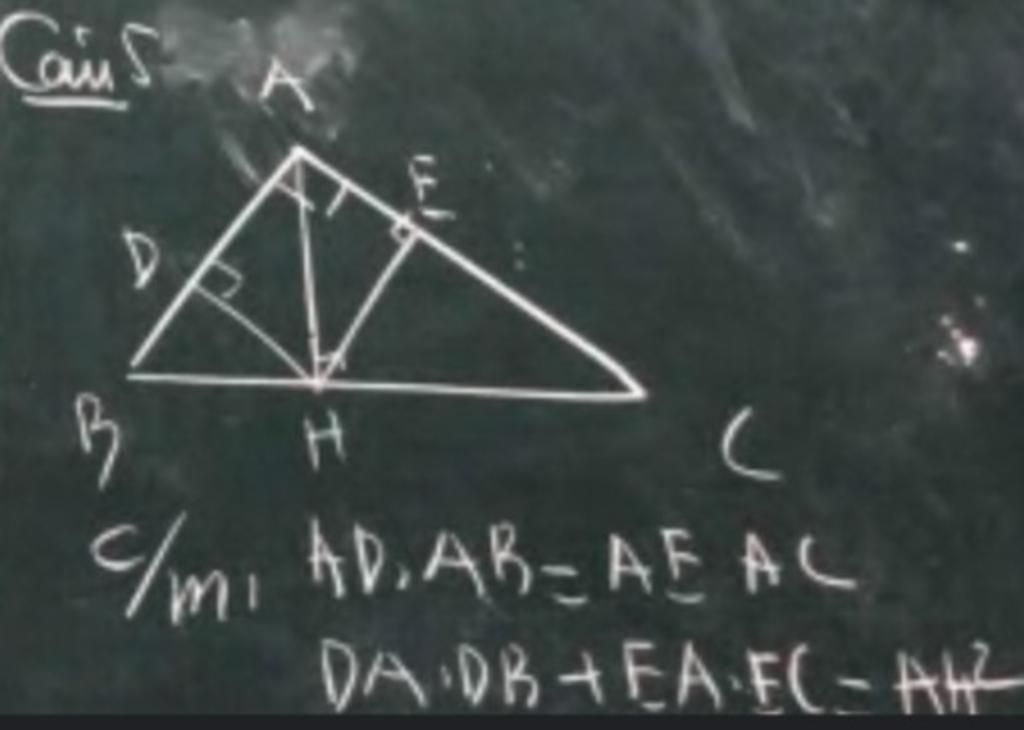 Câu 5
A
E
D
B
H
C
C/m: AD.AB = AE AC
DA.DB + EA.EC = AH²